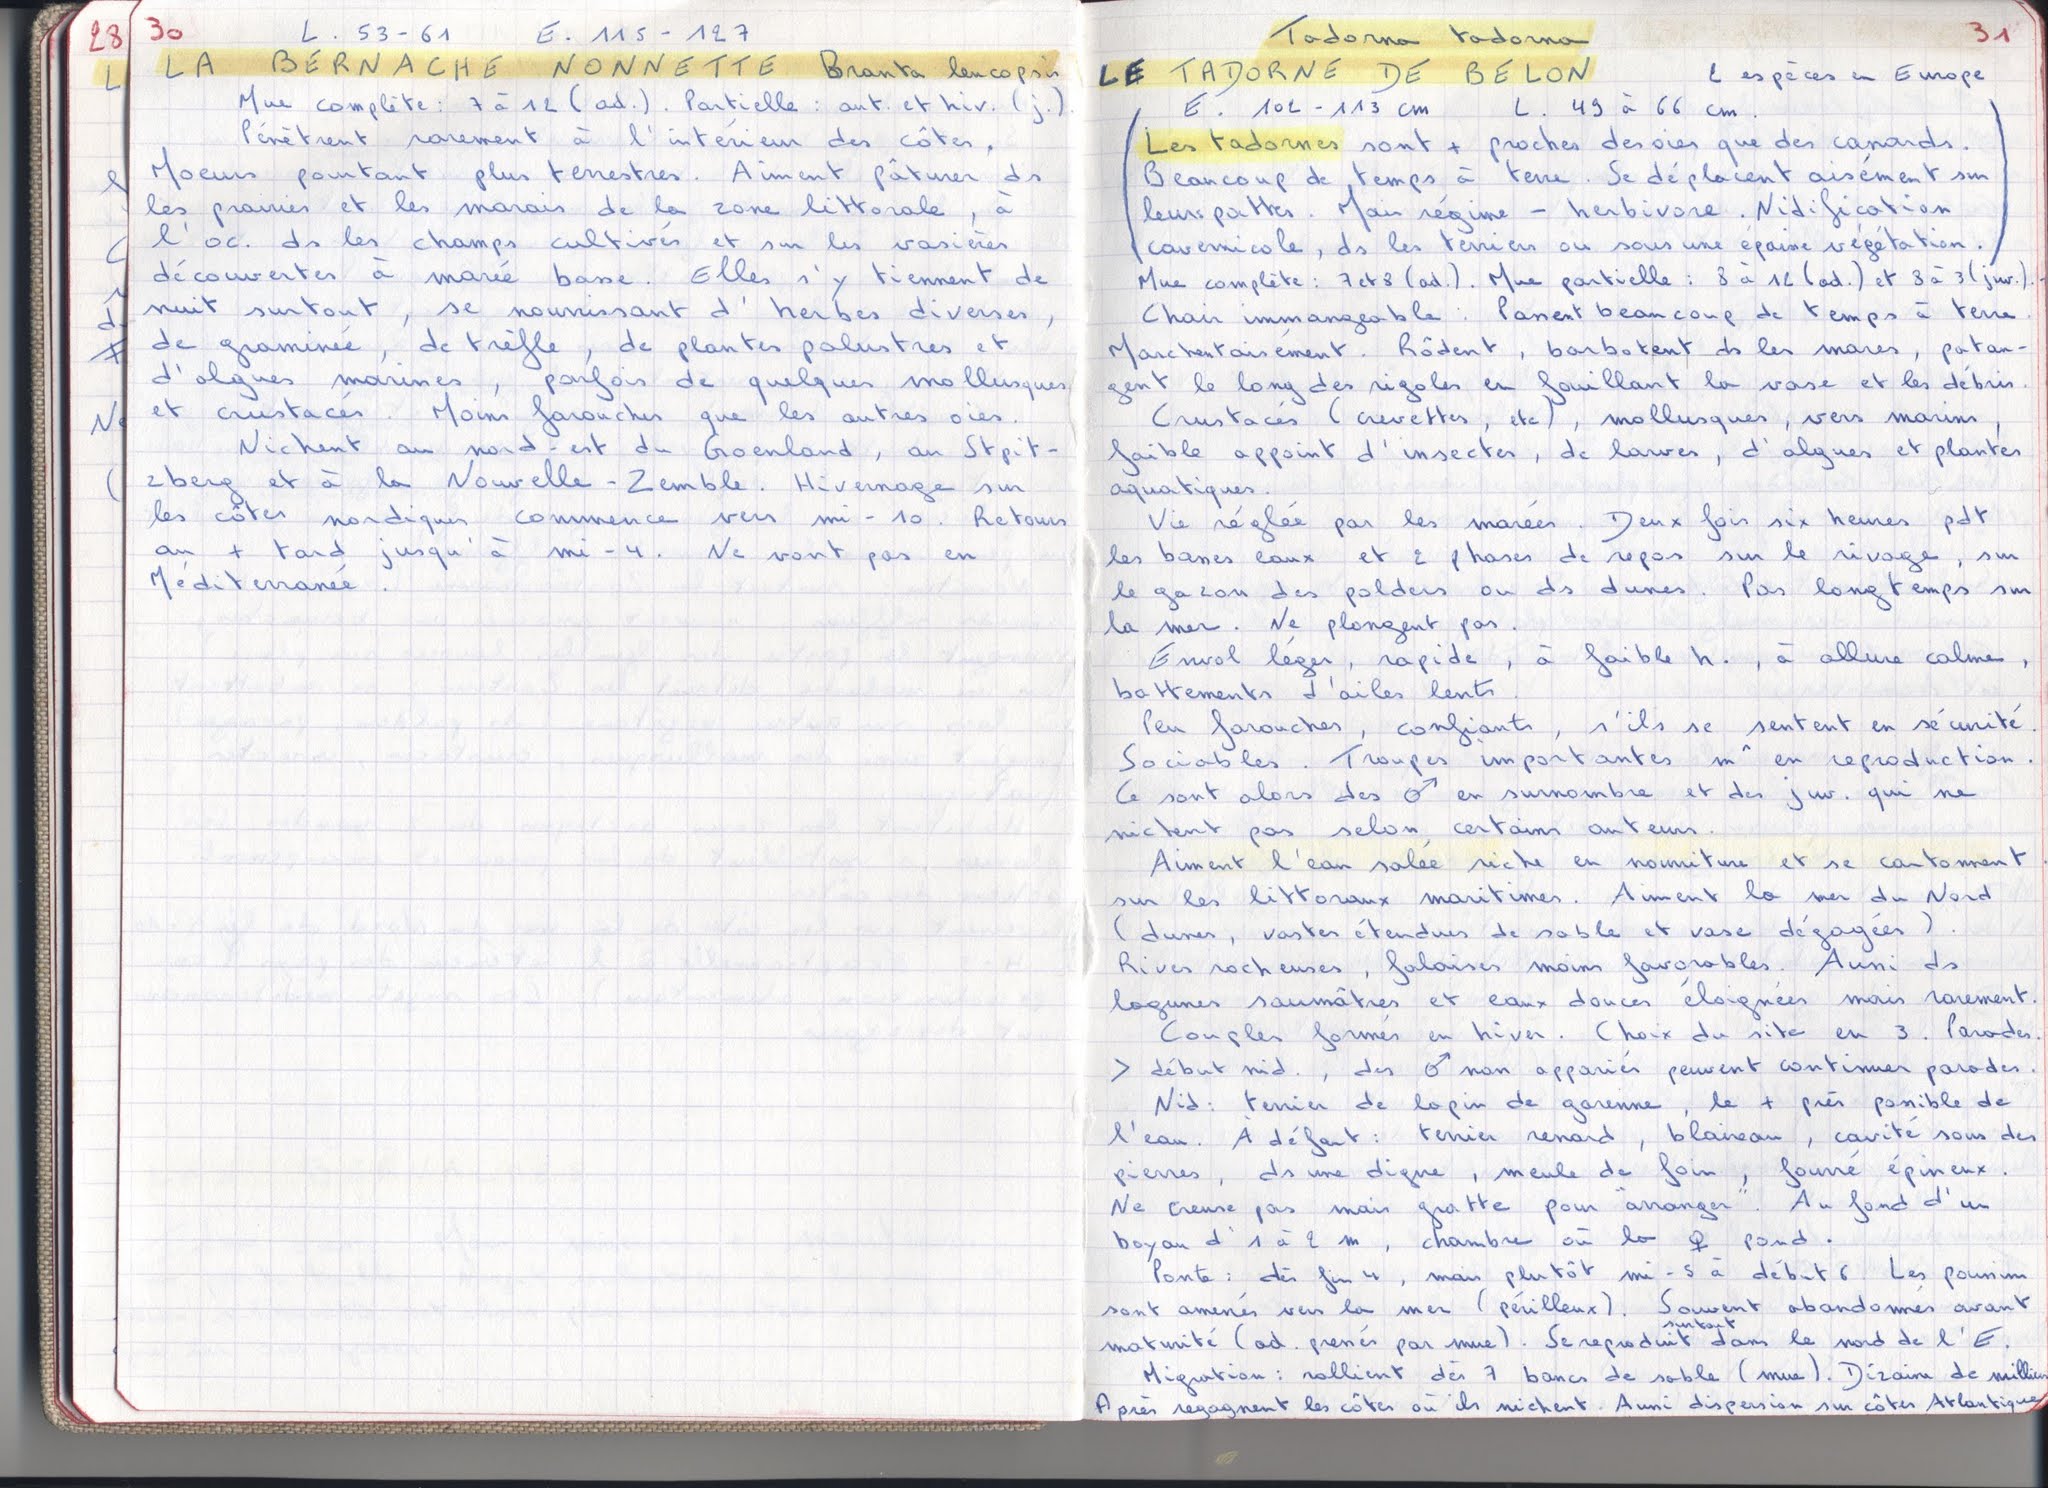 28
30
L. 53-61 E. 115-127
LA BERNACHE NONNETTE Branta leucopsis
Mue complète: 7 à 12 (ad.). Partielle: aut. et hiv. (j.).
Pénètrent rarement à l'intérieur des côtes.
Moeurs pourtant plus terrestres. Aiment pâturer ds
les prairies et les marais de la zone littorale, à
l'oc. ds les champs cultivés et sur les vasières
découvertes à marée basse. Elles s'y tiennent de
nuit surtout, se nourrissant d'herbes diverses,
de graminée, de trèfle, de plantes palustres et
d'algues marines, parfois de quelques mollusques
et crustacés. Moins farouches que les autres oies.
Nichent au nord-est du Groenland, au Stpit-
zberg et à la Nouvelle-Zemble. Hivernage sur
les côtes nordiques commence vers mi-10. Retours
au + tard jusqu'à mi-4. Ne vont pas en
Méditerranée.
Tadorna tadorna
31
LE TADORNE DE BELON 2 espèces en Europe
E. 102-113 cm L. 49 à 66 cm.
(Les tadornes sont + proches des oies que des canards.
Beaucoup de temps à terre. Se déplacent aisément sur
leurs pattes. Mais régime - herbivore. Nidification
cavernicole, ds les terriers ou sous une épaisse végétation.)
Mue complète: 7 et 8 (ad.). Mue partielle: 8 à 12 (ad.) et 8 à 3 (juv.).
Chair immangeable. Passent beaucoup de temps à terre.
Marchent aisément. Rôdent, barbotent ds les mares, patau-
gent le long des rigoles en fouillant la vase et les débris.
Crustacés (crevettes, etc), mollusques, vers marins,
faible appoint d'insectes, de larves, d'algues et plantes
aquatiques.
Vie réglée par les marées. Deux fois six heures pdt
les basses eaux et 2 phases de repos sur le rivage, sur
le gazon des polders ou ds dunes. Pas longtemps sur
la mer. Ne plongent pas.
Envol léger, rapide, à faible h., à allure calme,
battements d'ailes lents.
Peu farouches, confiants, s'ils se sentent en sécurité.
Sociables. Troupes importantes m^ en reproduction.
Ce sont alors des ♂ en surnombre et des juv. qui ne
nichent pas selon certains auteurs.
Aiment l'eau salée riche en nourriture et se cantonnent
sur les littoraux maritimes. Aiment la mer du Nord
(dunes, vastes étendues de sable et vase dégagées).
Rives rocheuses, falaises moins favorables. Aussi ds
lagunes saumâtres et eaux douces éloignées mais rarement.
Couples formés en hiver. Choix du site en 3. Parades.
> début nid., des ♂ non appariés peuvent continuer parades.
Nid: terrier de lapin de garenne, le + près possible de
l'eau. A défaut: terrier renard, blaireau, cavité sous des
pierres, ds une digue, meule de foin, fourré épineux.
Ne creuse pas mais gratte pour "arranger". Au fond d'un
boyau d'1 à 2 m, chambre où la ♀ pond.
Ponte: dès fin 4, mais plutôt mi-5 à début 6. Les poussins
sont amenés vers la mer (périlleux). Souvent abandonnés avant
maturité (ad. pressés par mue). Se reproduit surtout dans le nord de l'E.
Migration: rallient dès 7 bancs de sable (mue). Dizaine de milliers
Après regagnent les côtes où ils nichent. Aussi dispersion sur côtes Atlantiques